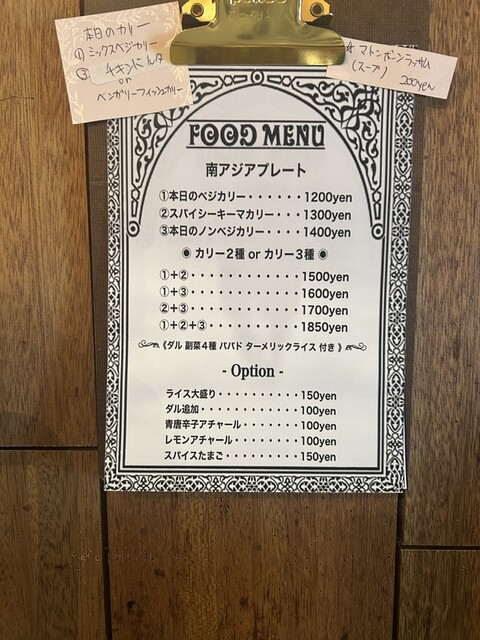 本日のカリー
①ミックスベジカリー
③チキンミルタ
or
ベンガリーフィッシュカリー
☆マトンボーンラッサム
(スープ) 200yen
FOOD MENU
南アジアプレート
①本日のベジカリー・・・・・・1200yen
②スパイシーキーマカリー・・・1300yen
③本日のノンベジカリー・・・・1400yen
◉ カリー2種 or カリー3種 ◉
①+②・・・・・・・・・・・・1500yen
①+③・・・・・・・・・・・・1600yen
②+③・・・・・・・・・・・・1700yen
①+②+③・・・・・・・・・・1850yen
《ダル 副菜４種 パパド ターメリックライス 付き 》
- Option -
ライス大盛り・・・・・・・・・150yen
ダル追加・・・・・・・・・・・100yen
青唐辛子アチャール・・・・・・100yen
レモンアチャール・・・・・・・100yen
スパイスたまご・・・・・・・・150yen